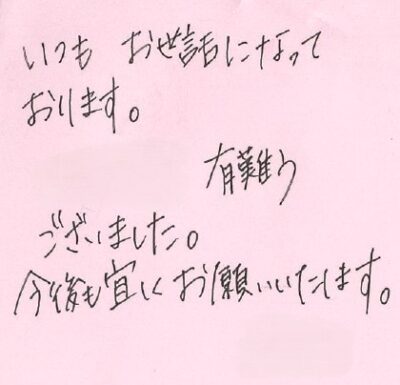 いつも お世話になって
おります。
有難う
ございました。
今後も宜しくお願いいたします。